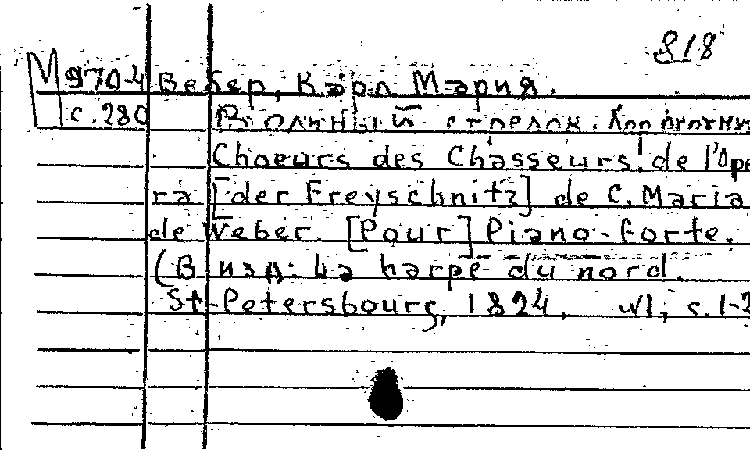 818
М 970-4 Вебер, Карл Мария.
с. 280 Вольный стрелок.
Choeurs des Chasseurs! de l'Ope
ra [der Freyschnitz] de C. Maria
de Weber. [Pour] Piano-forte.
(В изд: La harpe du nord.
St-Petersbourg, 1824, №1, с. 1-2